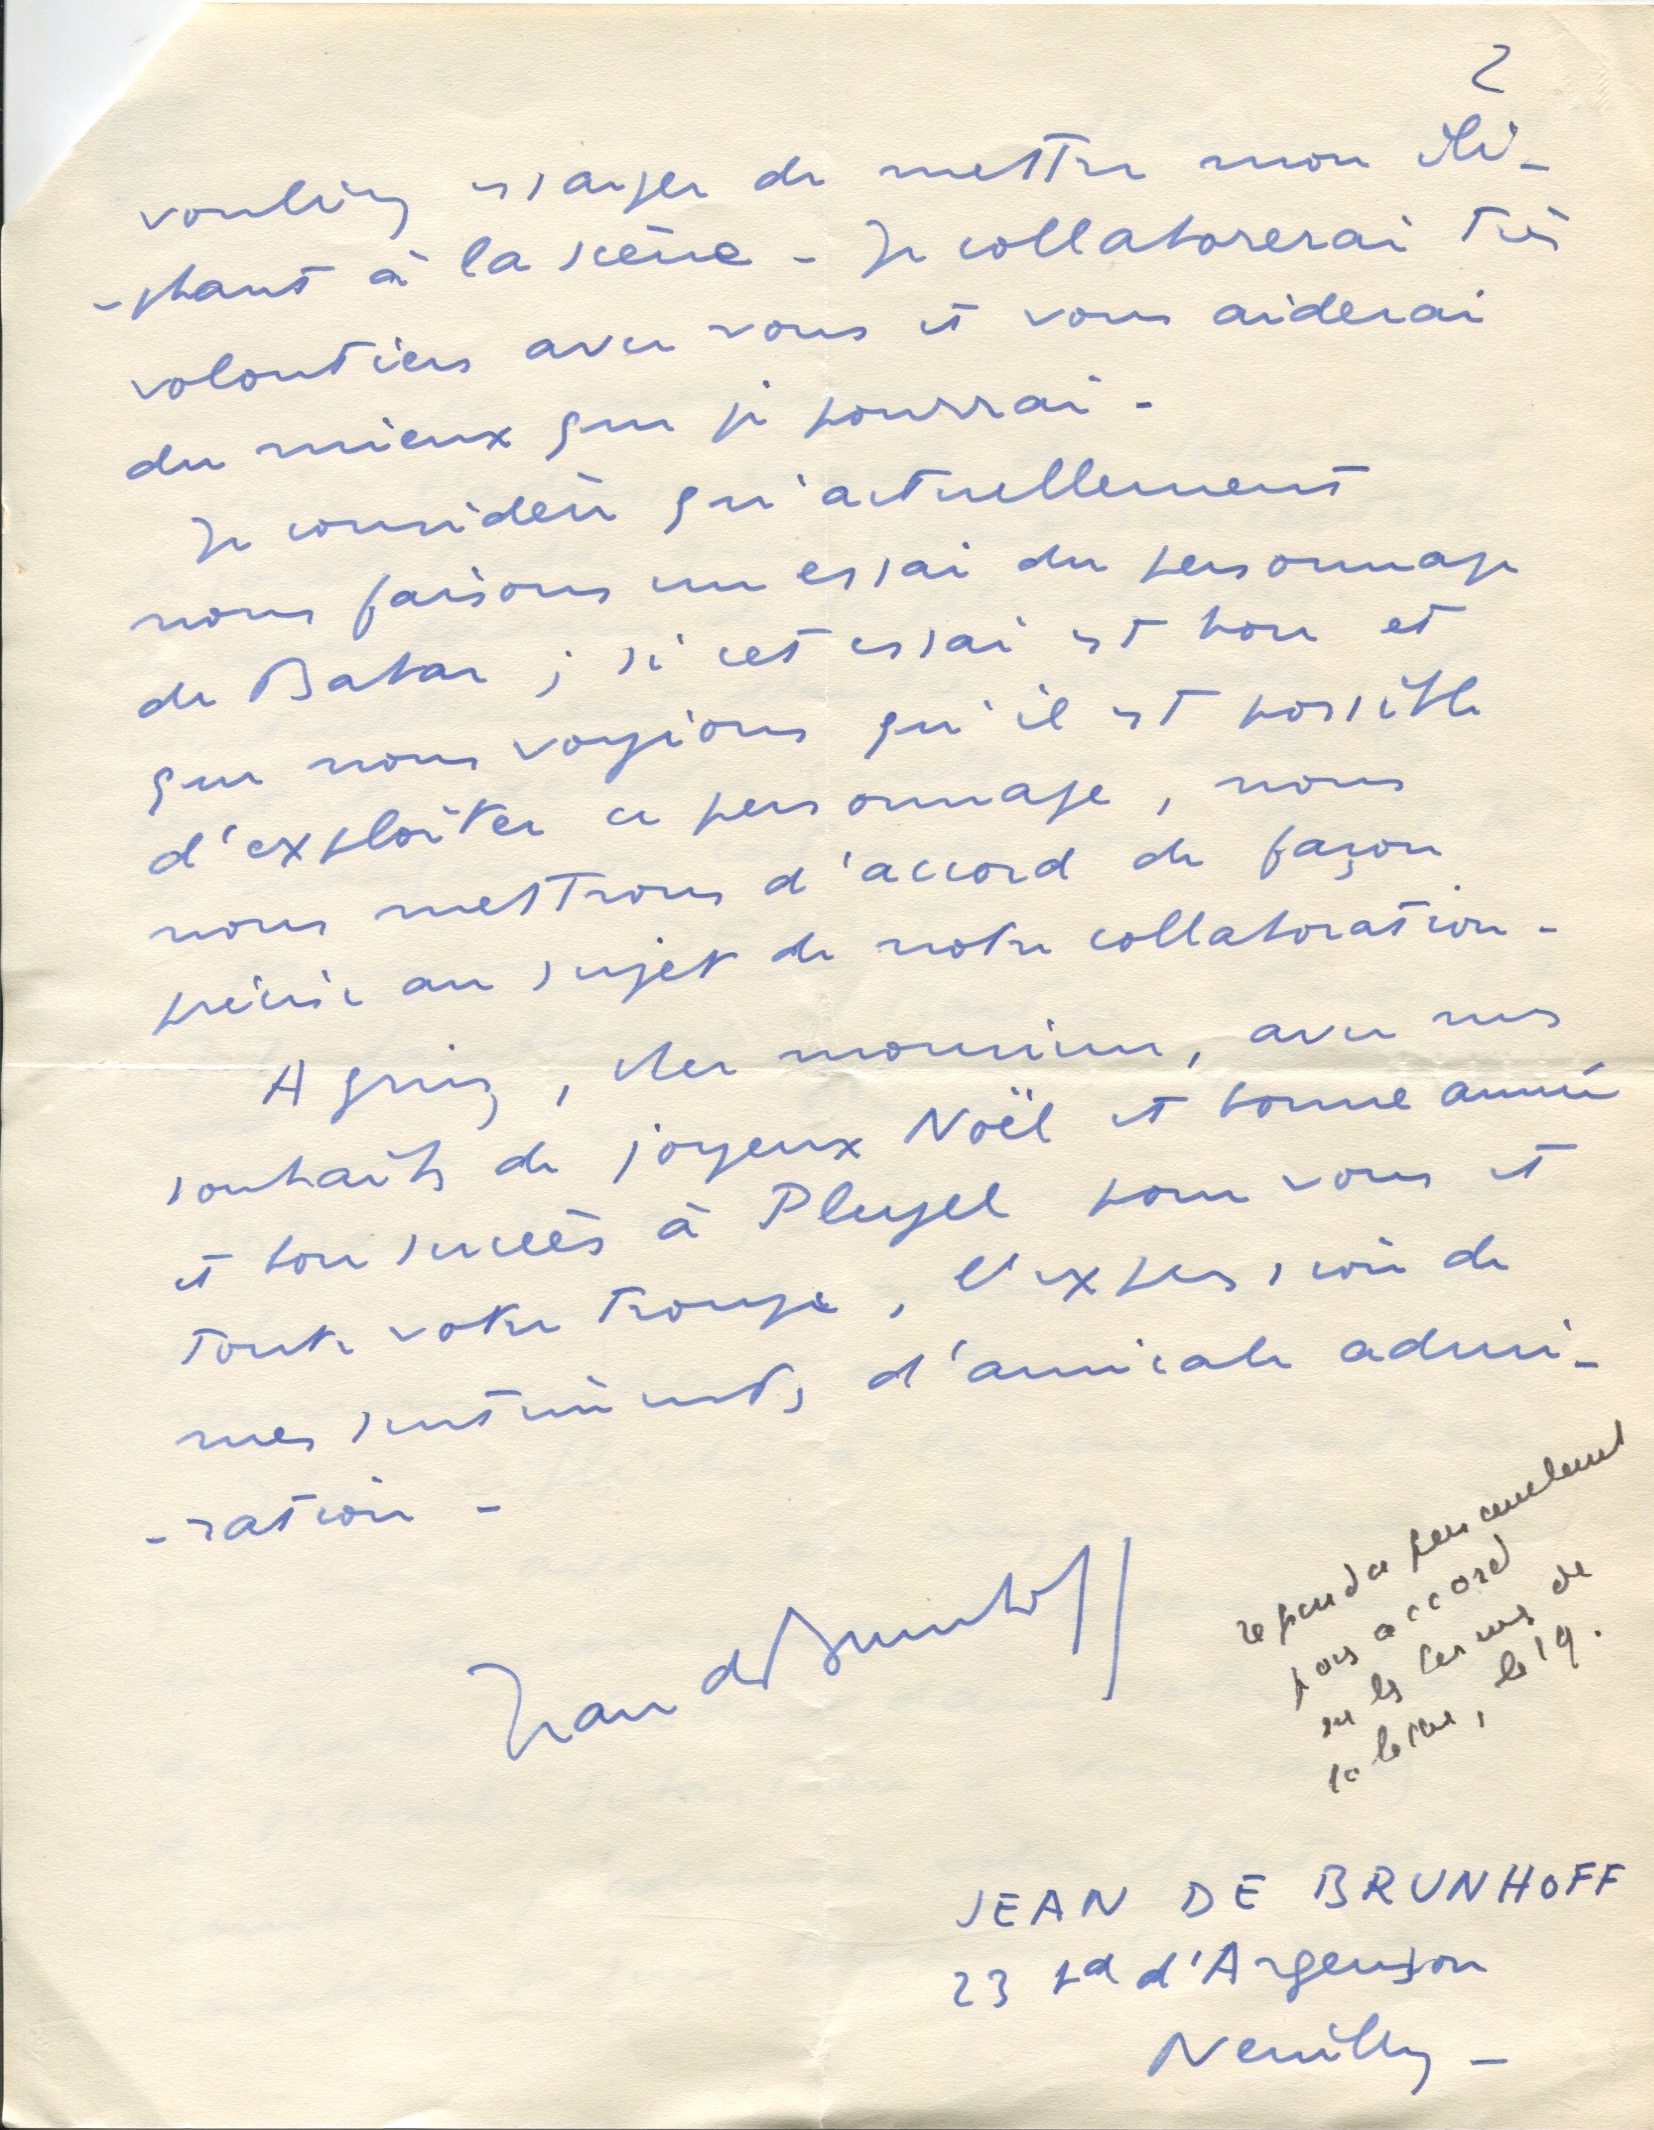 2
vouliez essayer de mettre mon élé-
-phant à la scène - Je collaborerai très
volontiers avec vous et vous aiderai
du mieux que je pourrai -
Je considère qu'actuellement
nous faisons un essai du personnage
de Babar ; si cet essai est bon et
que nous voyions qu'il est possible
d'exploiter ce personnage, nous
nous mettrons d'accord de façon
précise au sujet de notre collaboration -
Agréez, cher monsieur, avec mes
souhaits de joyeux Noël et bonne année
et bon succès à Pleyel pour vous et
toute votre troupe, l'expression de
mes sentiments d'amicale admi-
-ration -
Jean de Brunhoff
répondu
accord
sur les termes de
sa lettre, le 19.
JEAN DE BRUNHOFF
23 bd d'Argenson
Neuilly -